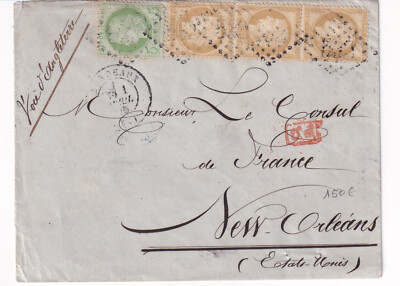 Voie d'Angleterre
BORDEAUX
1
Monsieur Le Consul
PD
de France
150€
New-Orléans
(Etats-Unis)